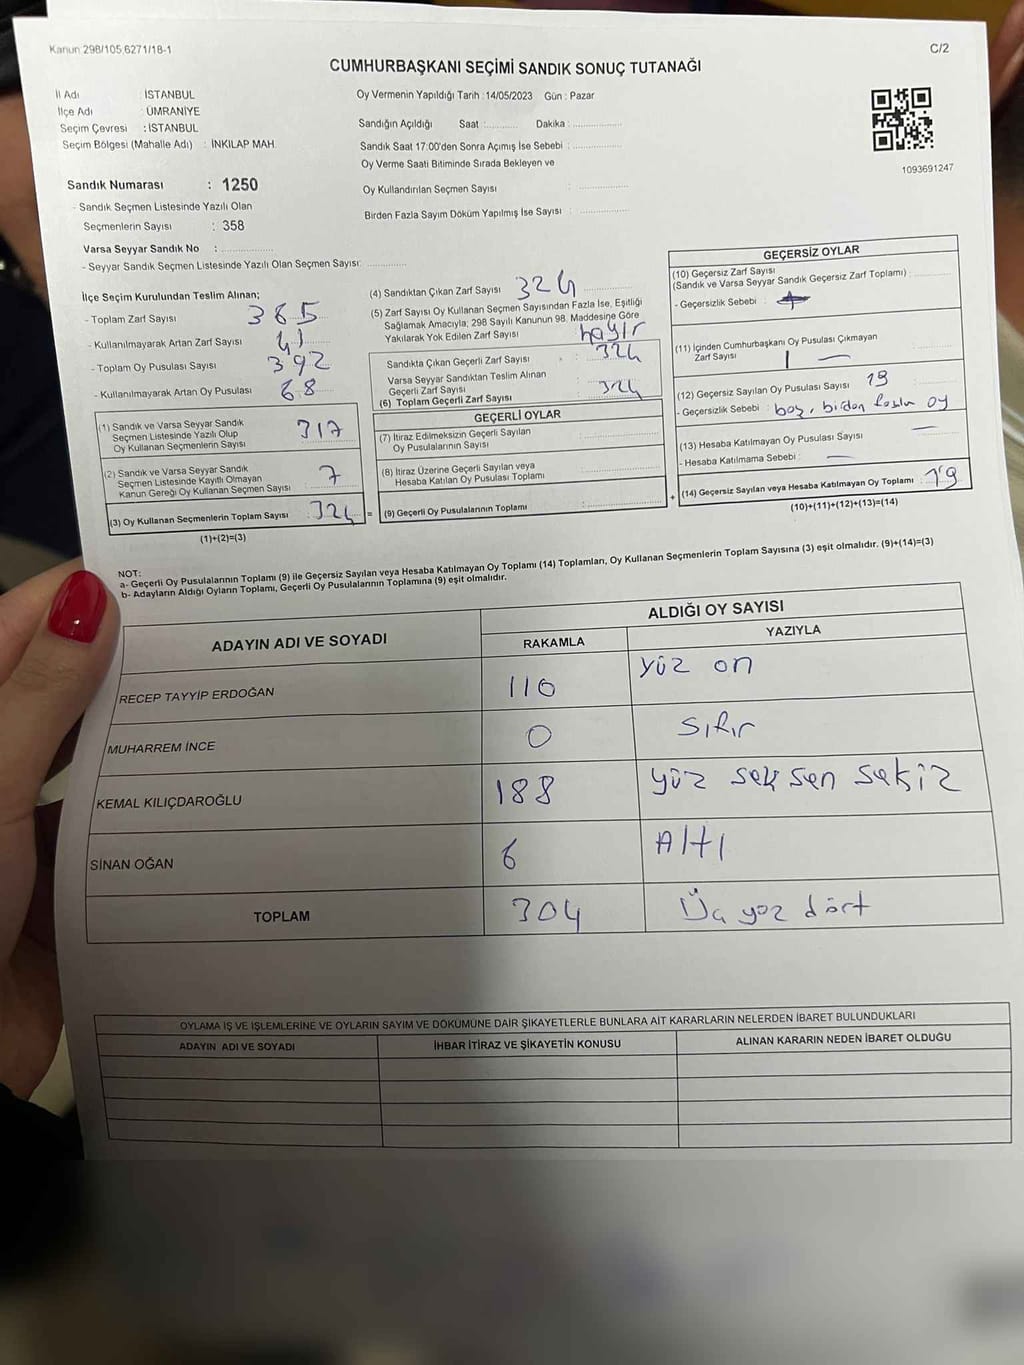 Kanun 298/105,6271/18-1
C/2
CUMHURBAŞKANI SEÇİMİ SANDIK SONUÇ TUTANAĞI
İl Adı : İSTANBUL
İlçe Adı : ÜMRANİYE
Seçim Çevresi : İSTANBUL
Seçim Bölgesi (Mahalle Adı) : İNKILAP MAH.
Sandık Numarası : 1250
- Sandık Seçmen Listesinde Yazılı Olan
Seçmenlerin Sayısı : 358
Varsa Seyyar Sandık No : ................
- Seyyar Sandık Seçmen Listesinde Yazılı Olan Seçmen Sayısı: ............
Oy Vermenin Yapıldığı Tarih : 14/05/2023 Gün : Pazar
Sandığın Açıldığı Saat :........... Dakika : ................
Sandık Saat 17:00'den Sonra Açımış İse Sebebi : ................
Oy Verme Saati Bitiminde Sırada Bekleyen ve
Oy Kullandırılan Seçmen Sayısı : ................
Birden Fazla Sayım Döküm Yapılmış İse Sayısı : ................
1093691247
İlçe Seçim Kurulundan Teslim Alınan;
- Toplam Zarf Sayısı 365
- Kullanılmayarak Artan Zarf Sayısı 41
- Toplam Oy Pusulası Sayısı 392
- Kullanılmayarak Artan Oy Pusulası 68
(1) Sandık ve Varsa Seyyar Sandık
Seçmen Listesinde Yazılı Olup
Oy Kullanan Seçmenlerin Sayısı 317
(2) Sandık ve Varsa Seyyar Sandık
Seçmen Listesinde Kayıtlı Olmayan
Kanun Gereği Oy Kullanan Seçmen Sayısı : 7
(3) Oy Kullanan Seçmenlerin Toplam Sayısı 324 =
(1)+(2)=(3)
(4) Sandıktan Çıkan Zarf Sayısı 324
(5) Zarf Sayısı Oy Kullanan Seçmen Sayısından Fazla İse, Eşitliği
Sağlamak Amacıyla; 298 Sayılı Kanunun 98. Maddesine Göre
Yakılarak Yok Edilen Zarf Sayısı hayır
Sandıkta Çıkan Geçerli Zarf Sayısı : 324
Varsa Seyyar Sandıktan Teslim Alınan
Geçerli Zarf Sayısı
(6) Toplam Geçerli Zarf Sayısı 324
GEÇERLİ OYLAR
(7) İtiraz Edilmeksizin Geçerli Sayılan
Oy Pusulalarının Sayısı :
(8) İtiraz Üzerine Geçerli Sayılan veya
Hesaba Katılan Oy Pusulası Toplamı :
(9) Geçerli Oy Pusulalarının Toplamı : +
GEÇERSİZ OYLAR
(10) Geçersiz Zarf Sayısı
(Sandık ve Varsa Seyyar Sandık Geçersiz Zarf Toplamı) :
- Geçersizlik Sebebi :
(11) İçinden Cumhurbaşkanı Oy Pusulası Çıkmayan
Zarf Sayısı 1 —
(12) Geçersiz Sayılan Oy Pusulası Sayısı 19
- Geçersizlik Sebebi : boş, birden fazla oy
(13) Hesaba Katılmayan Oy Pusulası Sayısı : —
- Hesaba Katılmama Sebebi : —
(14) Geçersiz Sayılan veya Hesaba Katılmayan Oy Toplamı : 19
(10)+(11)+(12)+(13)=(14)
NOT:
a- Geçerli Oy Pusulalarının Toplamı (9) ile Geçersiz Sayılan veya Hesaba Katılmayan Oy Toplamı (14) Toplamları, Oy Kullanan Seçmenlerin Toplam Sayısına (3) eşit olmalıdır. (9)+(14)=(3)
b- Adayların Aldığı Oyların Toplamı, Geçerli Oy Pusulalarının Toplamına (9) eşit olmalıdır.
ADAYIN ADI VE SOYADI
ALDIĞI OY SAYISI
RAKAMLA YAZIYLA
RECEP TAYYİP ERDOĞAN 110 yüz on
MUHARREM İNCE 0 sıfır
KEMAL KILIÇDAROĞLU 188 yüz seksen sekiz
SİNAN OĞAN 6 Altı
TOPLAM 304 Üç yüz dört
OYLAMA İŞ VE İŞLEMLERİNE VE OYLARIN SAYIM VE DÖKÜMÜNE DAİR ŞİKAYETLERLE BUNLARA AİT KARARLARIN NELERDEN İBARET BULUNDUKLARI
ADAYIN ADI VE SOYADI İHBAR İTİRAZ VE ŞİKAYETİN KONUSU ALINAN KARARIN NEDEN İBARET OLDUĞU